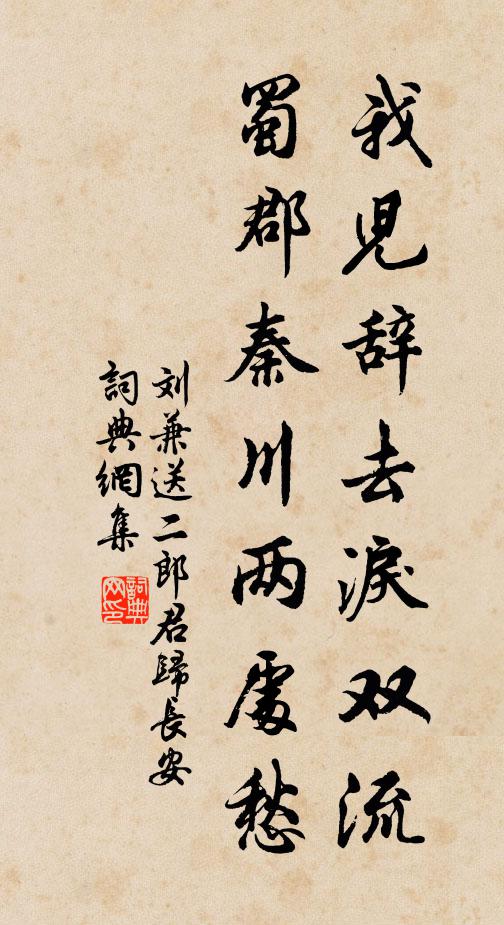 我兒辞去淚双流
蜀郡秦川两處愁
刘兼送二郎君歸長安
詞典網集
詞典
网印